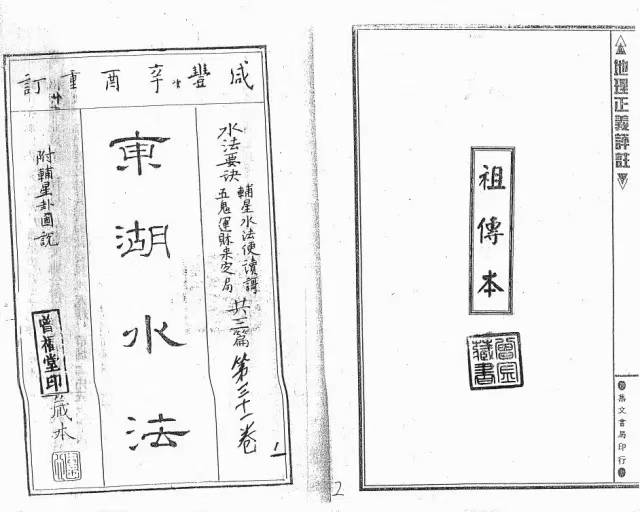 地理正義評註
祖傳本
曾氏藏書
集文書局印行
2
咸豐辛酉重訂
水法要訣
輔星水法便讀謌
五鬼運財來定局
共三篇
第三十一卷
1
東湖水法
附輔星卦圖説
曾福堂印
藏本